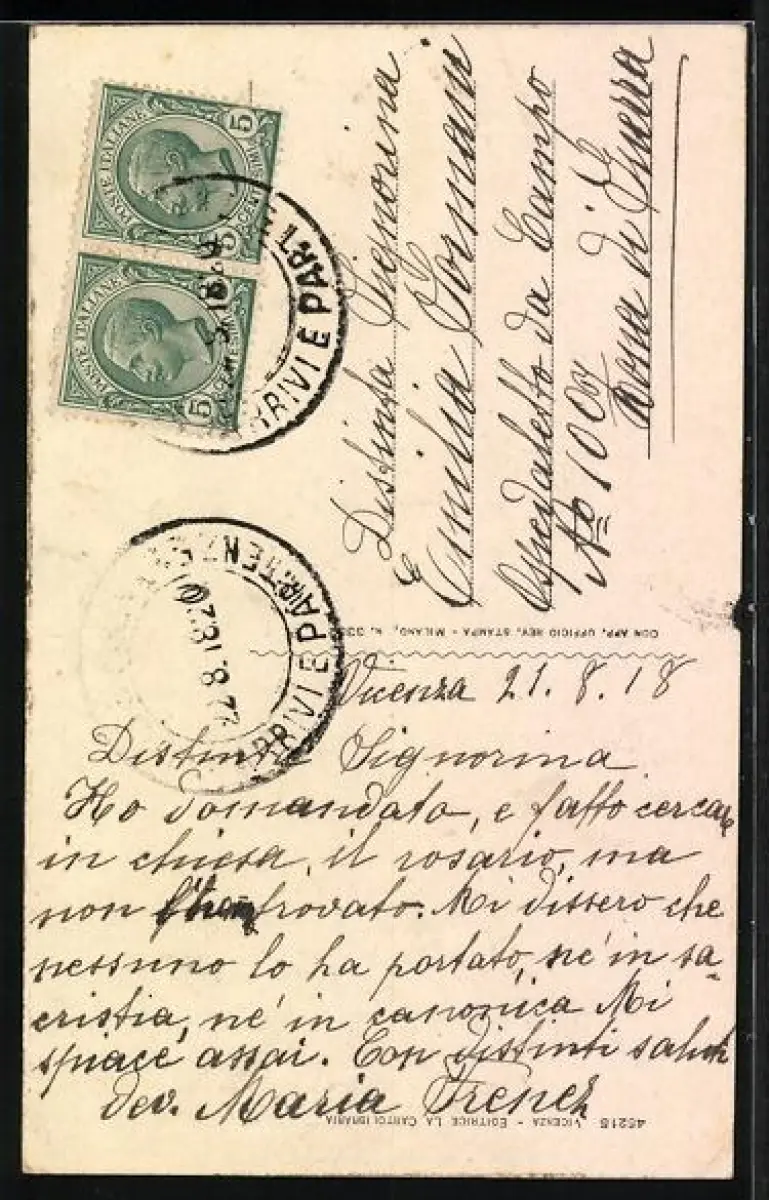 POSTE ITALIANE
CENTESIMI
5 5
POSTE ITALIANE
CENTESIMI
5 5
ARRIVI E PARTENZE
22.8.18.20
Distinta Signorina
Emilia Sormani
Ospedaletto da Campo
No 100
Zona di Guerra
CON APP. UFFICIO REV. STAMPA - MILANO, N. 333
Vicenza 21.8.18
Distinta Signorina
Ho domandato, e fatto cercare
in chiesa, il rosario, ma
non trovato. Mi dissero che
nessuno lo ha portato, nè in sa-
cristia, nè in canonica Mi
spiace assai. Con distinti saluti
dev. Maria Frenez
46215 VICENZA - EDITRICE LA CARTOLIBRARIA